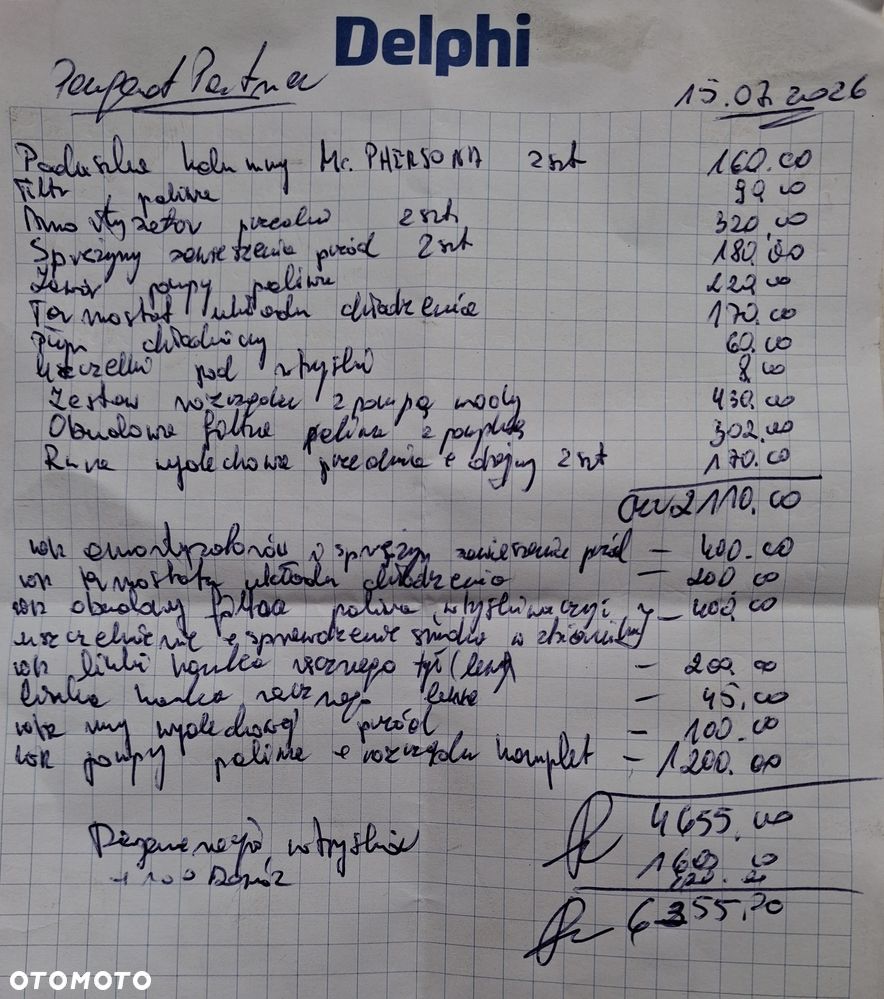 Delphi
Peugeot Partner
15.07.2026
Poduszka kolumny Mc.PHERSONA 2szt 160.00
Filtr paliwa 90.00
Amortyzator przedni 2szt 320.00
Sprężyny zawieszenia przód 2szt 180.00
Zawór pompy paliwa 220.00
Termostat układu chłodzenia 170.00
Płyn chłodniczy 60.00
Uszczelki pod wtryski 8.00
Zestaw rozrządu z pompą wody 430.00
Obudowa filtra paliwa z pompką 302.00
Rura wydechowa przednia + 2szt 170.00
2110.00
wym amortyzatorów i sprężyn zawieszenia przód – 400.00
wym termostatu układu chłodzenia – 200.00
wym obudowy filtra paliwa – 400.00
uszczelnienie + sprawdzenie w
wym linki hamulca ręcznego tył (lewy) – 200.00
linka ręcznego lewa – 45.00
wym rury wydechowej przód – 100.00
wym pompy paliwa + rozrządu komplet – 1200.00
4655.00
Regeneracja wtrysków 1600.00
+ 100 Dowóz
6355.00
OTOMOTO